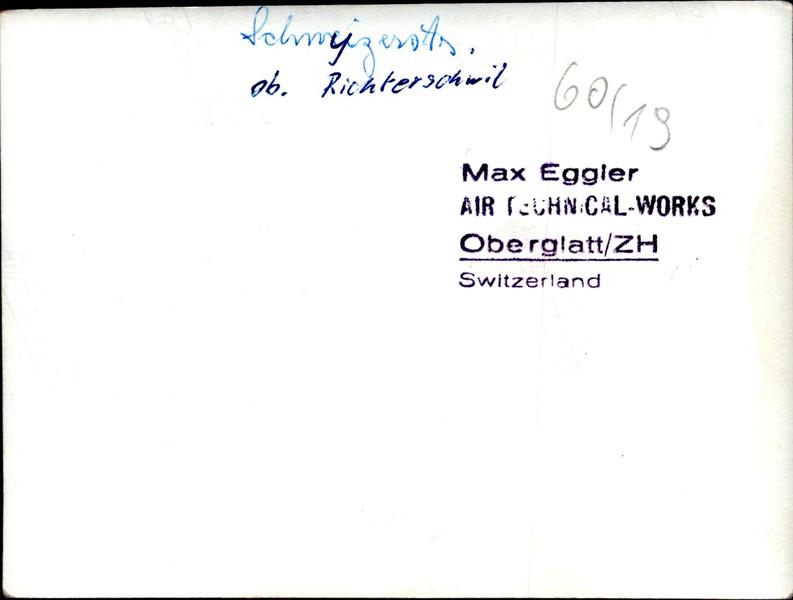 ob. Richterschwil
60/19
Max Eggler
AIR TECHNICAL-WORKS
Oberglatt/ZH
Switzerland